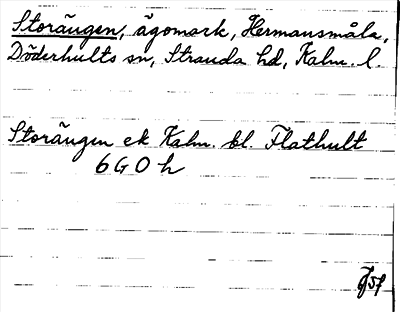 Storängen, ägomark, Hermansmåla,
Döderhults sn, Stranda hd, Kalm. l.
Storängen ek Kalm. bl. Flathult
6 G O h